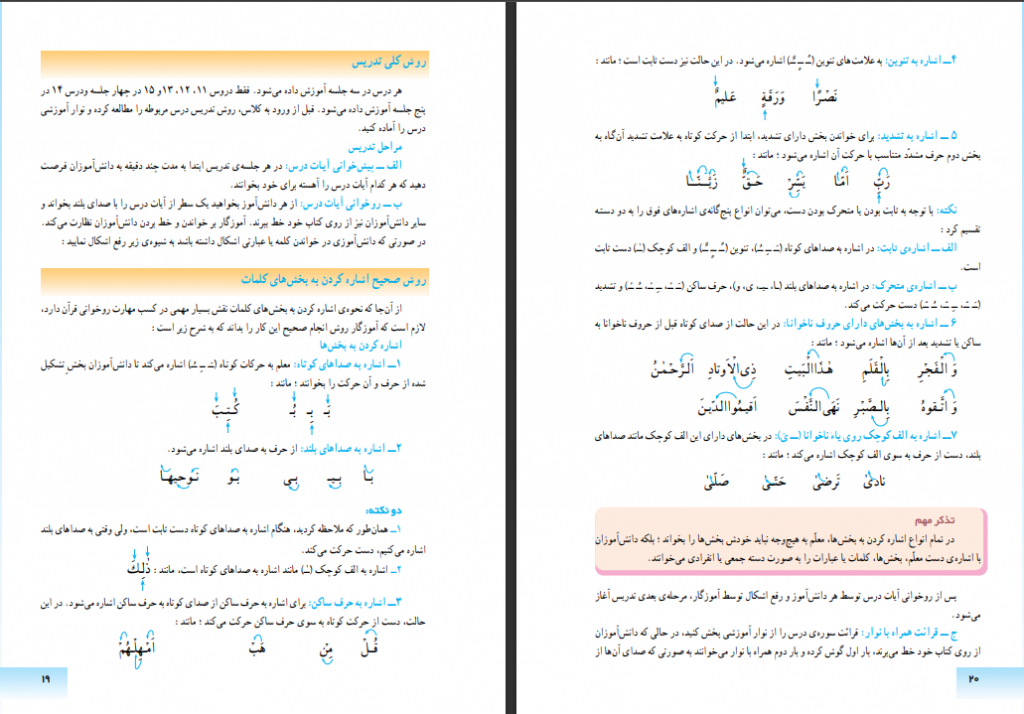 روش کلی تدریس
هر درس در سه جلسه آموزش داده می‌شود. فقط دروس ۱۱، ۱۲، ۱۳و ۱۵ در چهار جلسه ودرس ۱۴ در
پنج جلسه آموزش داده می‌شود. قبل از ورود به کلاس، روش تدریس درس مربوطه را مطالعه کرده و نوار آموزشی
درس را آماده کنید.
مراحل تدریس
الف ــ پیش‌خوانی آیات درس: در هر جلسه‌ی تدریس ابتدا به مدت چند دقیقه به دانش‌آموزان فرصت
دهید که هر کدام آیات درس را آهسته برای خود بخوانند.
ب ــ روخوانی آیات درس: از هر دانش‌آموز بخواهید یک سطر از آیات درس را با صدای بلند بخواند و
سایر دانش‌آموزان نیز از روی کتاب خود خط ببرند. آموزگار بر خواندن و خط بردن دانش‌آموزان نظارت می‌کند.
در صورتی که دانش‌آموزی در خواندن کلمه یا عبارتی اشکال داشته باشد به شیوه‌ی زیر رفع اشکال نمایید :
روش صحیح اشاره کردن به بخش‌های کلمات
از آن‌جا که نحوه‌ی اشاره کردن به بخش‌های کلمات نقش بسیار مهمی در کسب مهارت روخوانی قرآن دارد،
لازم است که آموزگار روش انجام صحیح این کار را بداند که به شرح زیر است :
اشاره کردن به بخش‌ها
۱ــ اشاره به صداهای کوتاه: معلم به حرکات کوتاه (ــَـ ــِـ ــُـ) اشاره می‌کند تا دانش‌آموزان بخش تشکیل
شده از حرف و آن حرکت را بخوانند ؛ مانند :
بَـ بِـ بُـ کُتِبَ
۲ــ اشاره به صداهای بلند: از حرف به صدای بلند اشاره می‌شود.
بَـا بِـیـ بِی بُو نُوحِیهَا
دو نکته:
۱ــ همان‌طور که ملاحظه کردید، هنگام اشاره به صداهای کوتاه دست ثابت است، ولی وقتی به صداهای بلند
اشاره می‌کنیم، دست حرکت می‌کند.
۲ــ اشاره به الف کوچک (ــٰـ) مانند اشاره به صداهای کوتاه است، مانند : ذٰلِکَ
۳ــ اشاره به حرف ساکن: برای اشاره به حرف ساکن از صدای کوتاه به حرف ساکن اشاره می‌شود. در این
حالت، دست از حرکت کوتاه به سوی حرف ساکن حرکت می‌کند ؛ مانند :
قُـلْ مِنْ هَبْ اَمْهِلْهُمْ
۱۹
۴ــ اشاره به تنوین: به علامت‌های تنوین (ــًـ ــٍـ ــٌـ) اشاره می‌شود. در این حالت نیز دست ثابت است ؛ مانند :
نَصْرًا وَرَقَةٍ عَلیمٌ
۵ ــ اشاره به تشدید: برای خواندن بخش دارای تشدید، ابتدا از حرکت کوتاه به علامت تشدید آن‌گاه به
بخش دوم حرف مشدّد متناسب با حرکت آن اشاره می‌شود ؛ مانند :
رَبِّ اَمّا یَسِّرْ حَقٌّ زَیَّـنّـا
نکته: با توجه به ثابت بودن یا متحرک بودن دست، می‌توان انواع پنج‌گانه‌ی اشاره‌های فوق را به دو دسته
تقسیم کرد :
الف ــ اشاره‌ی ثابت: در اشاره به صداهای کوتاه (ــَـ ــِـ ــُـ)، تنوین (ــًـ ــٍـ ــٌـ) و الف کوچک (ــٰـ) دست ثابت
است.
ب ــ اشاره‌ی متحرک: در اشاره به صداهای بلند (ـَا، ـِیـ، ی، و)، حرف ساکن (ــَـ ـْـ، ــِـ ـْـ، ــُـ ـْـ) و تشدید
(ــَـ ـّـ، ــِـ ـّـ، ــُـ ـّـ) دست حرکت می‌کند.
۶ ــ اشاره به بخش‌های دارای حروف ناخوانا: در این حالت از صدای کوتاه قبل از حروف ناخوانا به
ساکن یا تشدید بعد از آن‌ها اشاره می‌شود ؛ مانند :
وَ الْفَجْرِ بِالْقَلَمِ هٰذَاالْبَیتِ ذِی‌الْاَوتادِ اَلرَّحْمٰنُ
وَ اتَّقوهُ بِالصَّبْرِ نَهَی‌النَّفْسَ اَقیمُواالدّینَ
۷ــ اشاره به الف کوچک روی یاء ناخوانا (ــٰ یٰ): در بخش‌های دارای این الف کوچک مانند صداهای
بلند، دست از حرف به سوی الف کوچک اشاره می‌کند ؛ مانند :
نادیٰ تَرضیٰ حَتّیٰ صَلّیٰ
تذکر مهم
در تمام انواع اشاره کردن به بخش‌ها، معلّم به هیچ‌وجه نباید خودش بخش‌ها را بخواند ؛ بلکه دانش‌آموزان
با اشاره‌ی دست معلّم، بخش‌ها، کلمات یا عبارات را به صورت دسته جمعی یا انفرادی می‌خوانند.
پس از روخوانی آیات درس توسط هر دانش‌آموز و رفع اشکال توسط آموزگار، مرحله‌ی بعدی تدریس آغاز
می‌شود.
ج ــ قرائت همراه با نوار: قرائت سوره‌ی درس را از نوار آموزشی پخش کنید، در حالی که دانش‌آموزان
از روی کتاب خود خط می‌برند، بار اول گوش کرده و بار دوم همراه با نوار می‌خوانند به صورتی که صدای آن‌ها از
۲۰